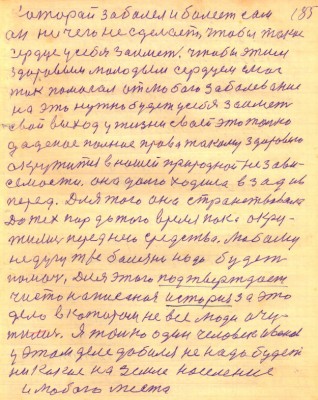 который заболел и болеет сам 185
он ни чего не сделает, чтобы такое
сердце у себя заимет. Чтобы этим
здоровым молодым сердцем смог
так помогал от любого заболевание
на это нужно будет у себя заимет
свой выход у жизни своей это только
даденое полние права такому здоровию
окружится в нашей природной не зави-
семости. она долго ходила в зад и в
перед. Для того она странствовала
До тех пор до того время пока окру-
жилис переднего средство. Любому
недугу те болезни надо будет
помоч, Для этого подтверждает
чисто написаная история за это
дело в котором не все люди очу-
тилис. Я только один человек
у этом деле добился не надо будет
ни какое на земле население
и любого места